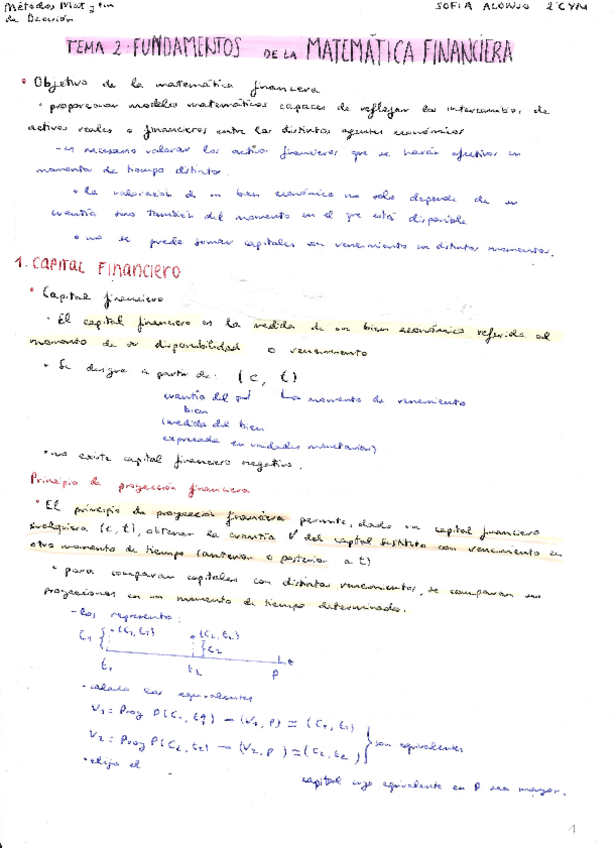 Métodos Mat y
de Decisión
SOFIA ALONSO 2ºCYM
TEMA 2: FUNDAMENTOS DE LA MATEMÁTICA FINANCIERA
• Objetivo de la matemática financiera
• proporcionar modelos matemáticos capaces de reflejar los intercambios de
activos reales o financieros entre los distintos agentes económicos
- es necesario valorar los activos financieros que se harán efectivos en
momentos de tiempo distintos.
• la valoración de un bien económico no solo depende de su
cuantía sino también del momento en el que está disponible
• no se puede sumar capitales con vencimiento en distintos momentos.
1. CAPITAL FINANCIERO
• Capital financiero
• El capital financiero es la medida de un bien económico referida al
momento de su disponibilidad o vencimiento
• Se designa a partir de: (C, t)
cuantía del
bien
(medida del bien
expresada en unidades monetarias)
momento de vencimiento
• no existe capital financiero negativo.
Principio de proyección financiera
• El principio de proyección financiera permite, dado un capital financiero
cualquiera (C, t), obtener la cuantía V del capital sustituto con vencimiento en
otro momento de tiempo (anterior o posterior a t)
• para comparar capitales con distintos vencimientos, se comparan sus
proyecciones en un momento de tiempo determinado.
- los represento:
C1 { • (C1, t1) • (C2, t2)
{ C2
t1 t2 P t
• calculo los equivalentes
V1 = Proy P(C1, t1) — (V1, P) ≃ (C1, t1)
V2 = Proy P(C2, t2) — (V2, P) ≃ (C2, t2) } son equivalentes
• elijo el capital cuyo equivalente en P sea mayor.
1